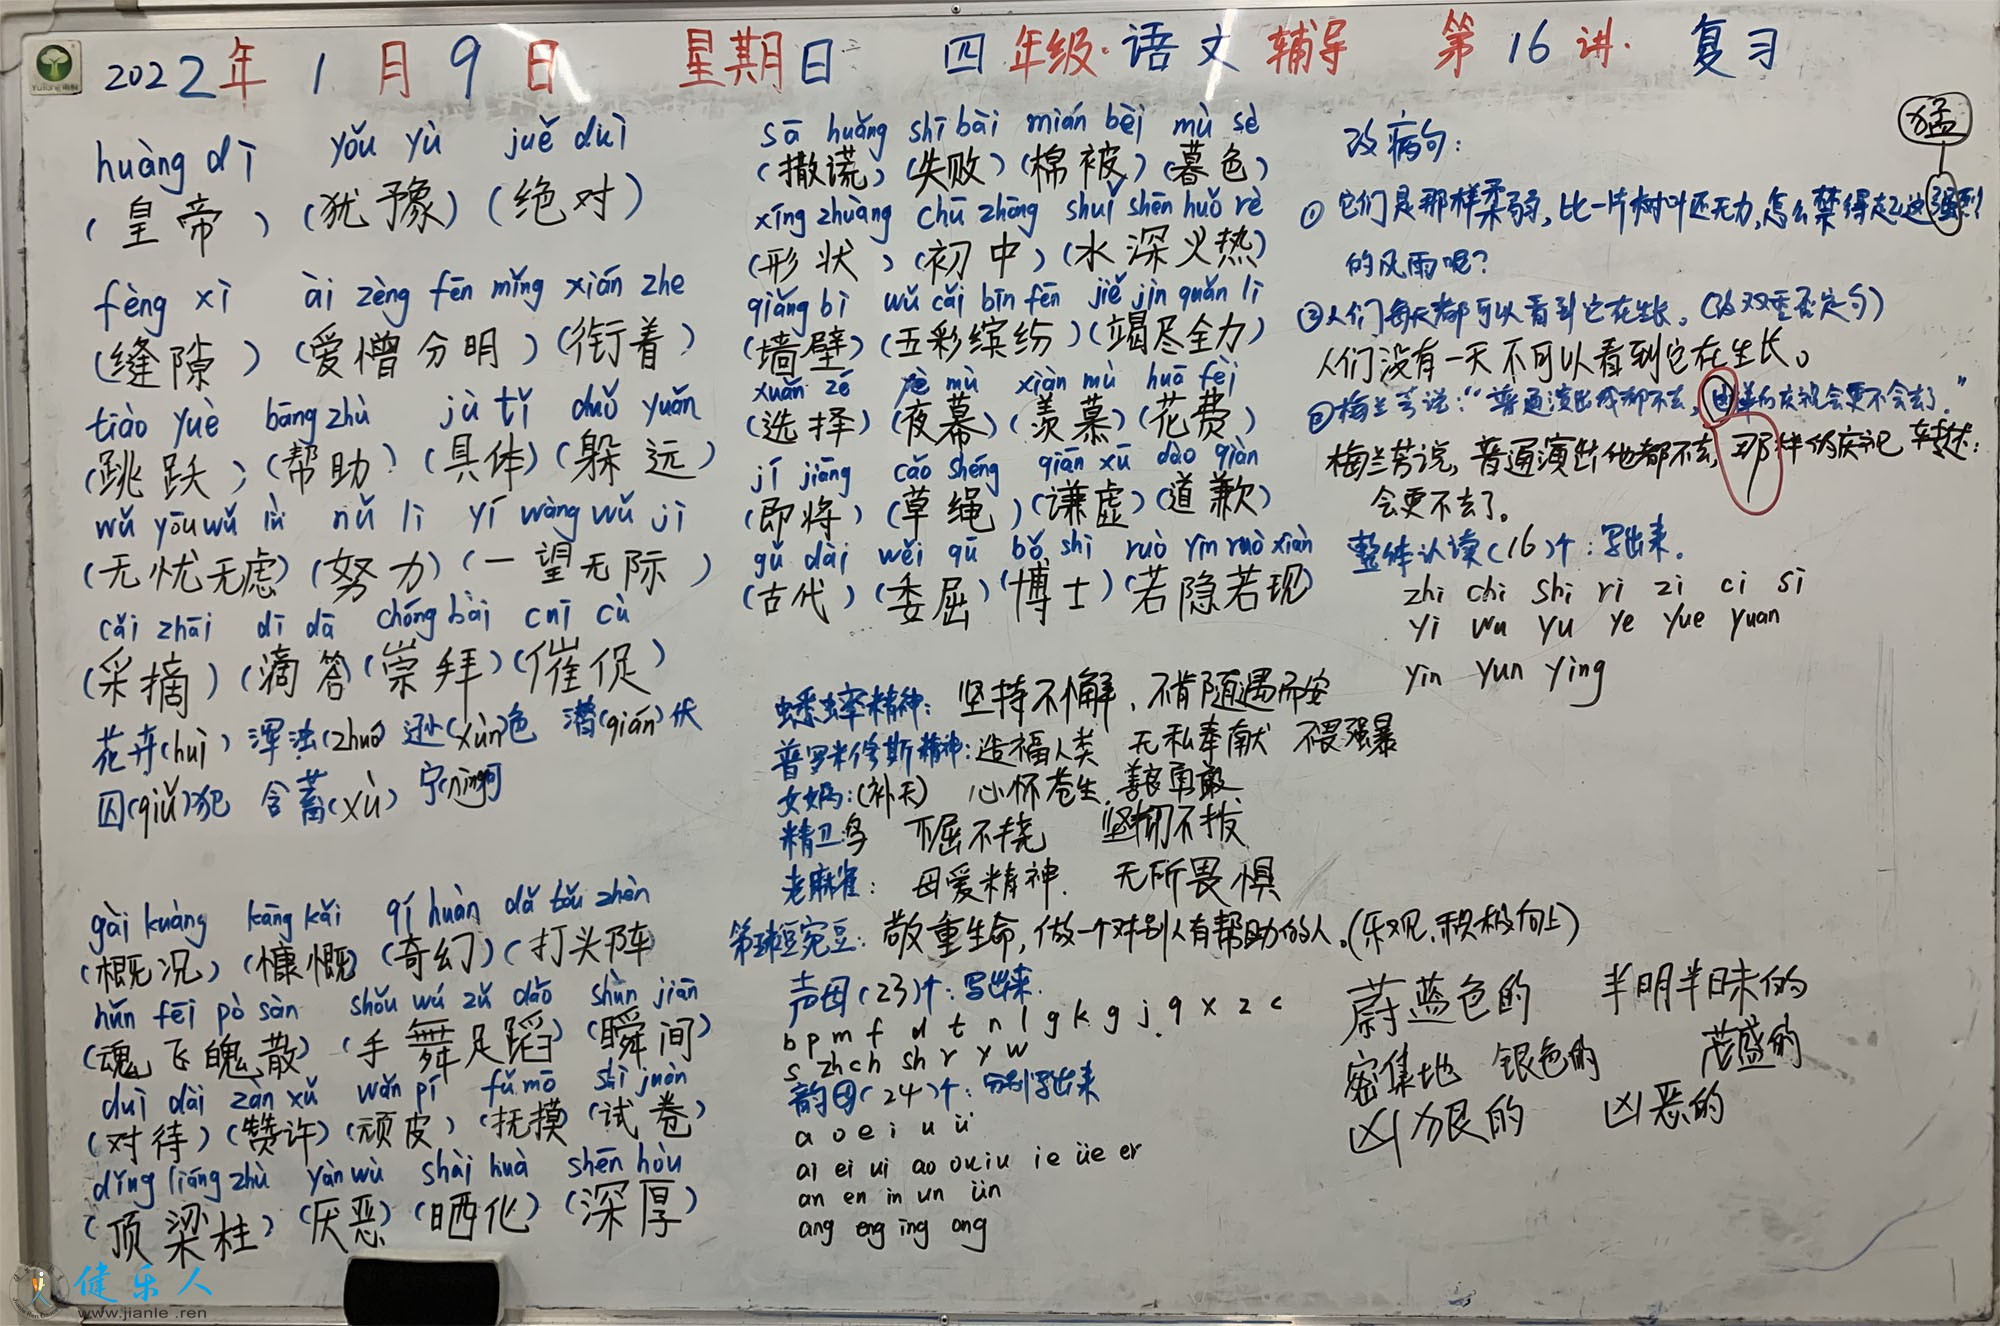 2022年1月9日 星期日 四年级·语文辅导 第16讲·复习
huàng dì yǒu yù jué duì
(皇帝)(犹豫)(绝对)
fèng xì ài zèng fēn míng xián zhe
(缝隙)(爱憎分明)(衔着)
tiào yuè bāng zhù jù tǐ duǒ yuǎn
(跳跃)(帮助)(具体)(躲远)
wú yōu wú lǜ nǔ lì yí wàng wú jì
(无忧无虑)(努力)(一望无际)
cǎi zhāi dī dā chóng bài cuī cù
(采摘)(滴答)(崇拜)(催促)
花卉(huì) 浑浊(zhuó) 逊(xùn)色 潜(qián)伏
囚(qiú)犯 含蓄(xù) 宁(nìng)可
gài kuàng kāng kǎi qí huàn dǎ tóu zhèn
(概况)(慷慨)(奇幻)(打头阵
hún fēi pò sàn shǒu wǔ zú dǎo shùn jiān
(魂飞魄散)(手舞足蹈)(瞬间)
duì dài zàn xǔ wán pí fǔ mō shì juàn
(对待)(赞许)(顽皮)(抚摸(试卷)
dǐng liáng zhù yàn wù shài huà shēn hòu
(顶梁柱)(厌恶)(晒化)(深厚)
sā huǎng shī bài mián bèi mù sè
(撒谎)(失败)(棉被)(暮色)
xíng zhuàng chū zhōng shuǐ shēn huǒ rè
(形状)(初中)(水深火热)
qiáng bì wǔ cǎi bīn fēn jié jìn quán lì
(墙壁)(五彩缤纷)(竭尽全力)
xuǎn zé yè mù xiàn mù huā fèi
(选择)(夜幕)(羡慕)(花费)
jí jiāng cǎo shéng qiān xū dào qiàn
(即将)(草绳)(谦虚)(道歉)
gǔ dài wěi qū bó shì ruò yǐn ruò xiàn
(古代)(委屈)(博士)(若隐若现)
蟋蟀精神:坚持不懈,不肯随遇而安
普罗米修斯精神:造福人类 无私奉献 不畏强暴
女娲:(补天) 心怀苍生,善良勇敢
精卫鸟 不屈不挠 坚韧不拔
老麻雀:母爱精神. 无所畏惧
第一班豌豆:敬重生命,做一个对别人有帮助的人。(乐观、积极向上)
声母(23)个:写出来.
b p m f d t n l g k g j q x z c
s zh ch sh r y w
韵母(24)个:分别写出来
a o e i u ü
ai ei ui ao ou iu ie üe er
an en in un ün
ang eng ing ong
猛
改病句:
①它们是那样柔弱,比一片树叶还无力,怎么禁得起这强烈
的风雨呢?
②人们每天都可以看到它在生长。(改双重否定句)
人们没有一天不可以看到它在生长。
③梅兰芳说:“普通演出我都不去,这样的庆祝会更不会去了。”
梅兰芳说,普通演出他都不去,那样的庆祝 转述:
会更不去了。
整体认读(16)个:写出来。
zhi chi shi ri zi ci si
yi wu yu ye yue yuan
yin yun ying
蔚蓝色的 半明半昧的
密集地 银色的 茂盛的
凶狠的 凶恶的
健乐人
www.jianle.ren